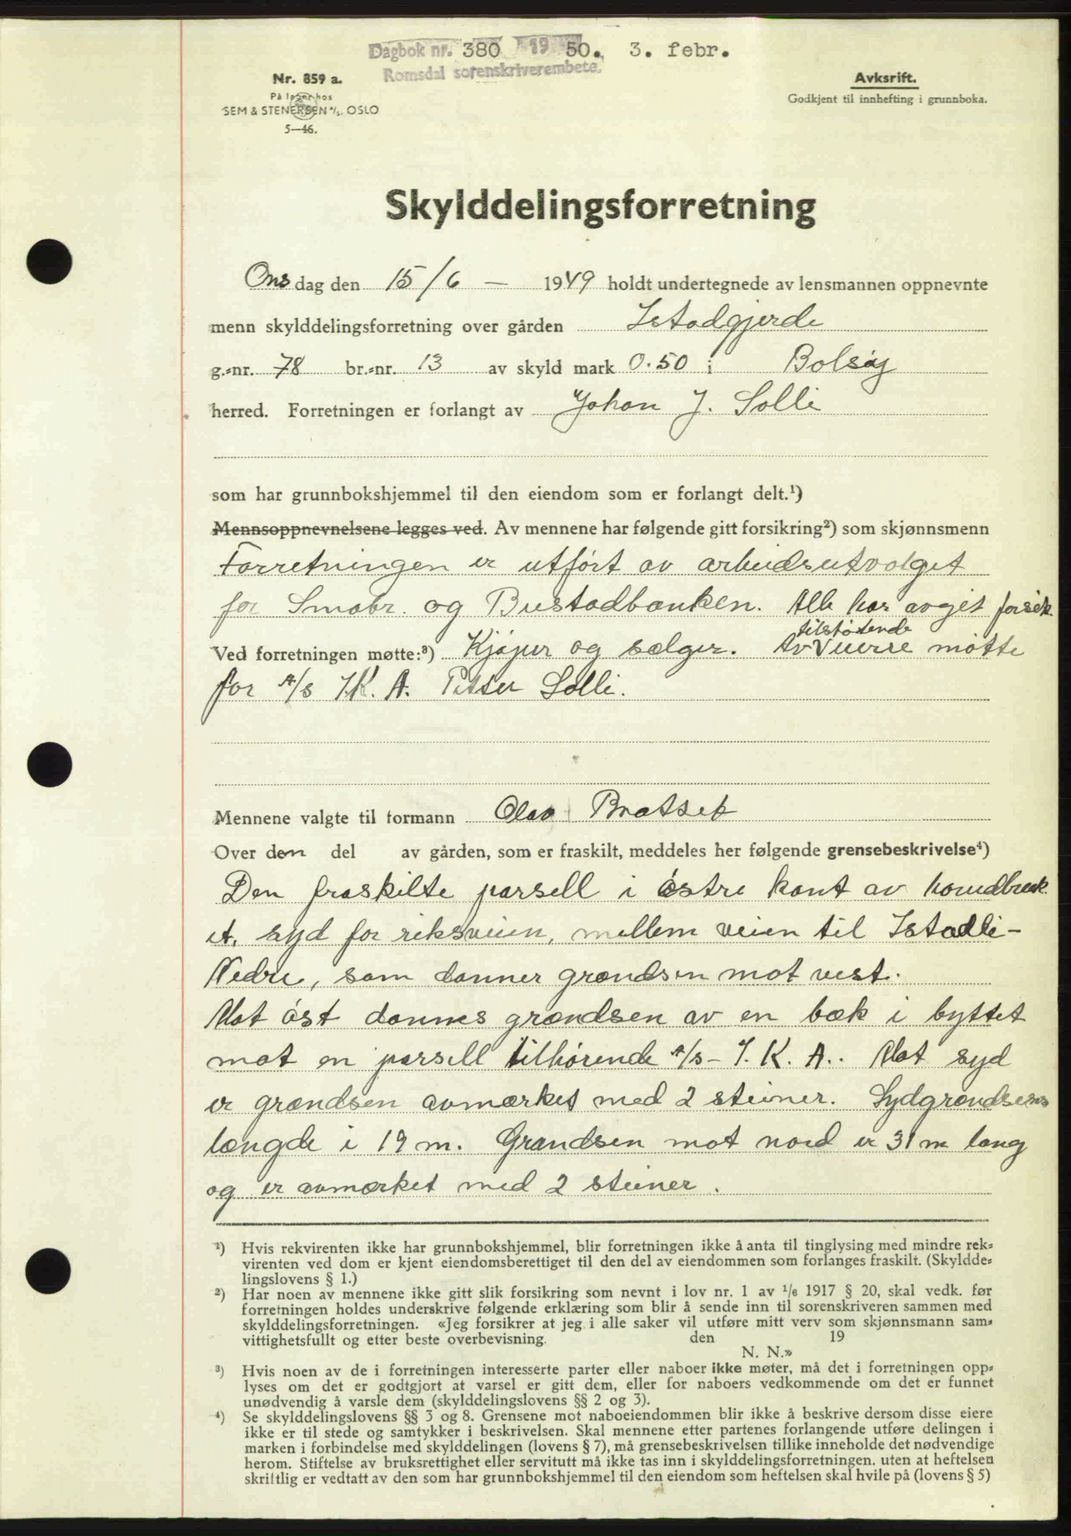 Dagbok nr. 380 1950. 3. febr.
Romsdal sorenskriverembete.
Nr. 859 a.
På lager hos
SEM & STENERSEN A/S. OSLO
5—46.
Avskrift.
Godkjent til innhefting i grunnboka.
Skylddelingsforretning
Onsdag den 15/6 — 1949 holdt undertegnede av lensmannen oppnevnte
menn skylddelingsforretning over gården Istadgjerde
g.-nr. 78 br.-nr. 13 av skyld mark 0.50 i Bolsøy
herred. Forretningen er forlangt av Johan J. Solli
som har grunnbokshjemmel til den eiendom som er forlangt delt.¹)
Mennsoppnevnelsene legges ved. Av mennene har følgende gitt forsikring²) som skjønnsmenn
Forretningen er utført av arbeidsutvalget
for Småbr. og Bustadbanken. Alle har avgjet forsik.
Ved forretningen møtte:³) Kjøper og sælger. Av tilstøtende møtte
for A/S I.K.A. Petter Solli.
Mennene valgte til formann Olav Bratset
Over den del av gården, som er fraskilt, meddeles her følgende grensebeskrivelse⁴)
Den fraskilte parsell i østre kant av hovedbruk
et, syd for riksveien, mellem veien til Istadli-
Nedre, som danner grændsen mot vest.
Mot øst dannes grændsen av en bæk i byttet
mot en parsell tilhørende A/S - I.K.A.. Mot syd
er grændsen avmærket med 2 steiner. Sydgrændsens
længde i 19 m. Grændsen mot nord er 31 m lang
og er avmærket med 2 steiner.
¹) Hvis rekvirenten ikke har grunnbokshjemmel, blir forretningen ikke å anta til tinglysing med mindre rek-
virenten ved dom er kjent eiendomsberettiget til den del av eiendommen som forlanges fraskilt. (Skyldde-
lingslovens § 1.)
²) Har noen av mennene ikke gitt slik forsikring som nevnt i lov nr. 1 av 1/6 1917 § 20, skal vedk. før
forretningen holdes underskrive følgende erklæring som blir å sende inn til sorenskriveren sammen med
skylddelingsforretningen. «Jeg forsikrer at jeg i alle saker vil utføre mitt verv som skjønnsmann sam-
vittighetsfullt og etter beste overbevisning. den 19
N. N.»
³) Hvis noen av de i forretningen interesserte parter eller naboer ikke møter, må det i forretningen opp-
lyses om det er godtgjort at varsel er gitt dem, eller for naboers vedkommende om det er funnet
unødvendig å varsle dem (skylddelingslovens §§ 2 og 3).
⁴) Se skylddelingslovens §§ 3 og 8. Grensene mot naboeiendommen blir ikke å beskrive dersom disse eiere
ikke er til stede og samtykker i beskrivelsen. Skal mennene etter partenes forlangende utføre delingen i
marken i forbindelse med skylddelingen (lovens § 7), må grensebeskrivelsen tillike inneholde det nødvendige
herom. Stiftelse av bruksrettighet eller servitutt må ikke tas inn i skylddelingsforretningen, uten at heftelsen
skriftlig er vedtatt av den som har grunnbokshjemmel til den eiendom som heftelsen skal hvile på (lovens § 5)